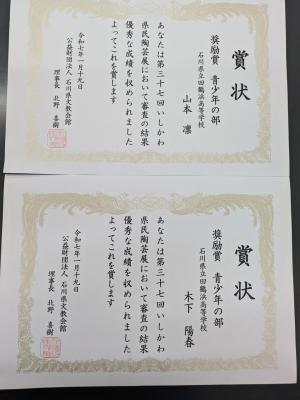 賞状
奨励賞 青少年の部
石川県立田鶴浜高等学校
山本 凛
あなたは第三十七回いしかわ
県民陶芸展において審査の結果
優秀な成績を収められました
よってこれを賞します
令和七年一月十九日
公益財団法人 石川県文教会館
理事長 北野 喜樹
賞状
奨励賞 青少年の部
石川県立田鶴浜高等学校
木下 陽春
あなたは第三十七回いしかわ
県民陶芸展において審査の結果
優秀な成績を収められました
よってこれを賞します
令和七年一月十九日
公益財団法人 石川県文教会館
理事長 北野 喜樹